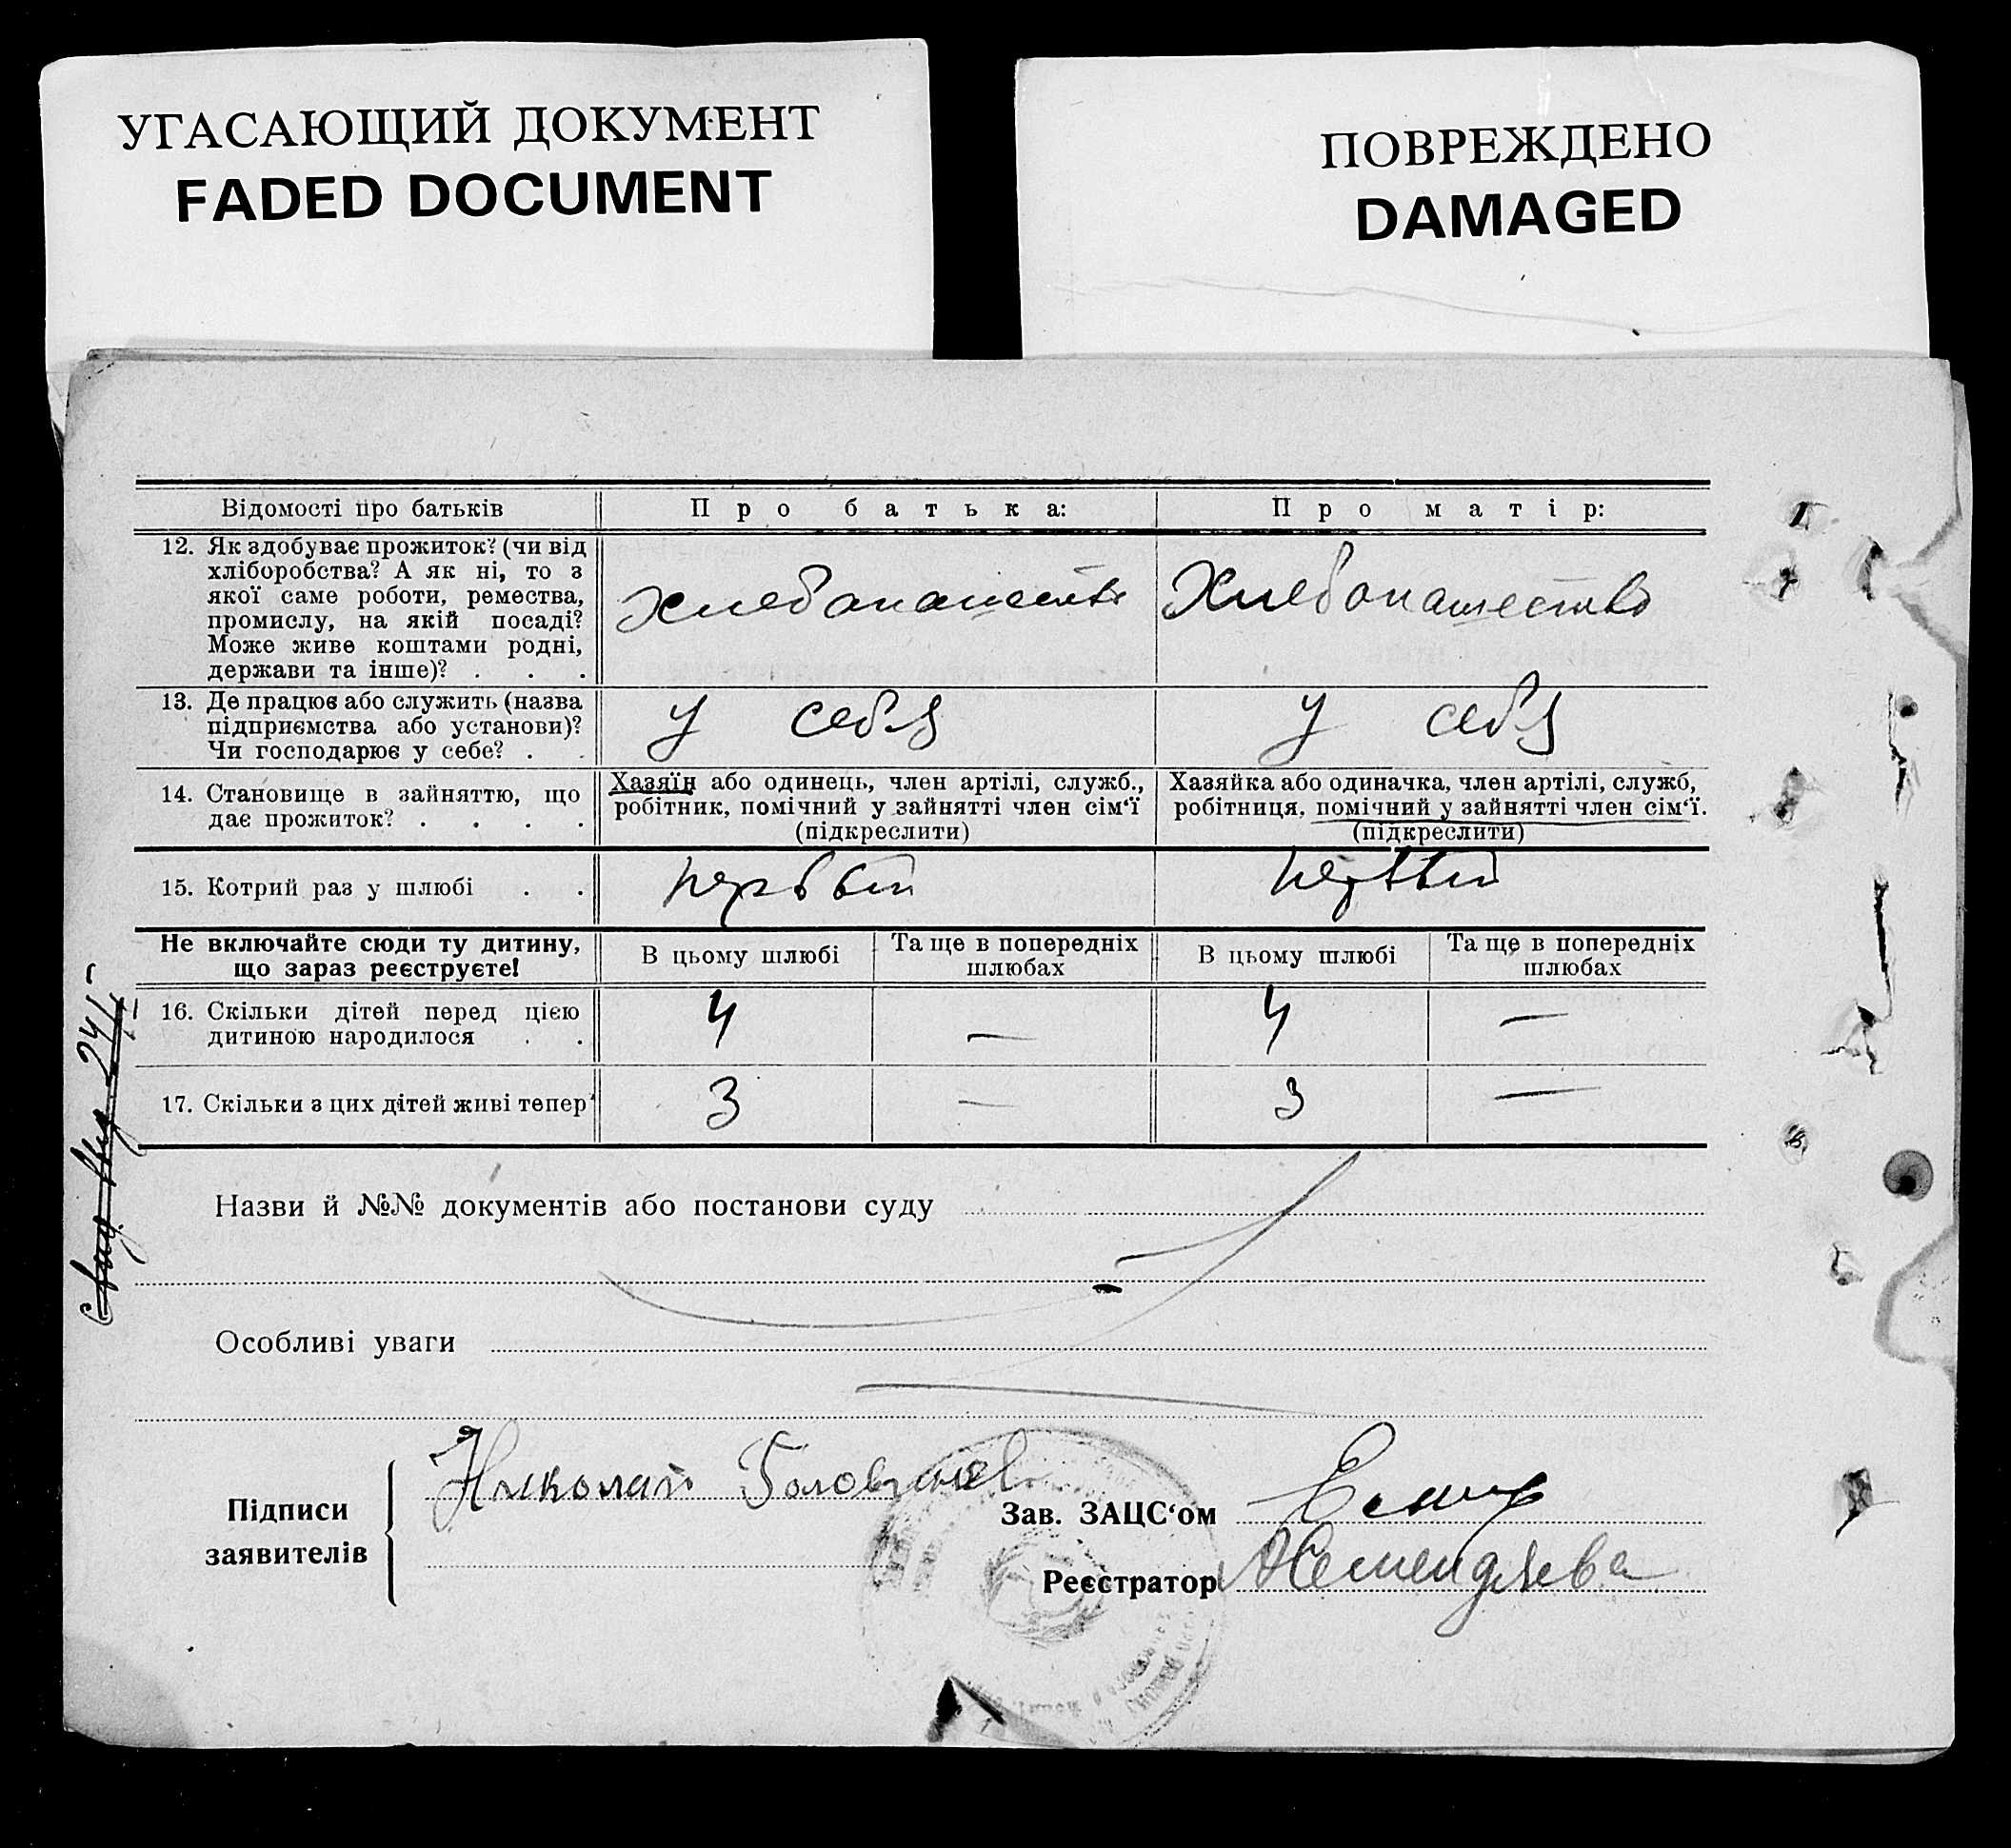 УГАСАЮЩИЙ ДОКУМЕНТ
FADED DOCUMENT
ПОВРЕЖДЕНО
DAMAGED
Відомості про батьків
Про батька:
Про матір:
12. Як здобуває прожиток? (чи від
хліборобства? А як ні, то з
якої саме роботи, ремества,
промислу, на якій посаді?
Може живе коштами родні,
держави та інше)? . . .
Хлебопашество
Хлебопашество
13. Де працює або служить (назва
підприємства або установи)?
Чи господарює у себе? . .
у себя
у себя
14. Становище в зайняттю, що
дає прожиток? . . . .
Хазяїн або одинець, член артілі, служб.,
робітник, помічний у зайнятті член сім‘ї
(підкреслити)
Хазяйка або одиначка, член артілі, служб,
робітниця, помічний у зайнятті член сім‘ї.
(підкреслити)
15. Котрий раз у шлюбі . .
первый
первый
Не включайте сюди ту дитину,
що зараз реєструєте!
В цьому шлюбі
Та ще в попередніх
шлюбах
В цьому шлюбі
Та ще в попередніх
шлюбах
16. Скільки дітей перед цією
дитиною народилося . .
4
—
4
—
17. Скільки з цих дітей живі тепер
3
—
3
—
Назви й №№ документів або постанови суду
Особливі уваги
Підписи
заявителів
Николай
Зав. ЗАЦС‘ом
Реєстратор